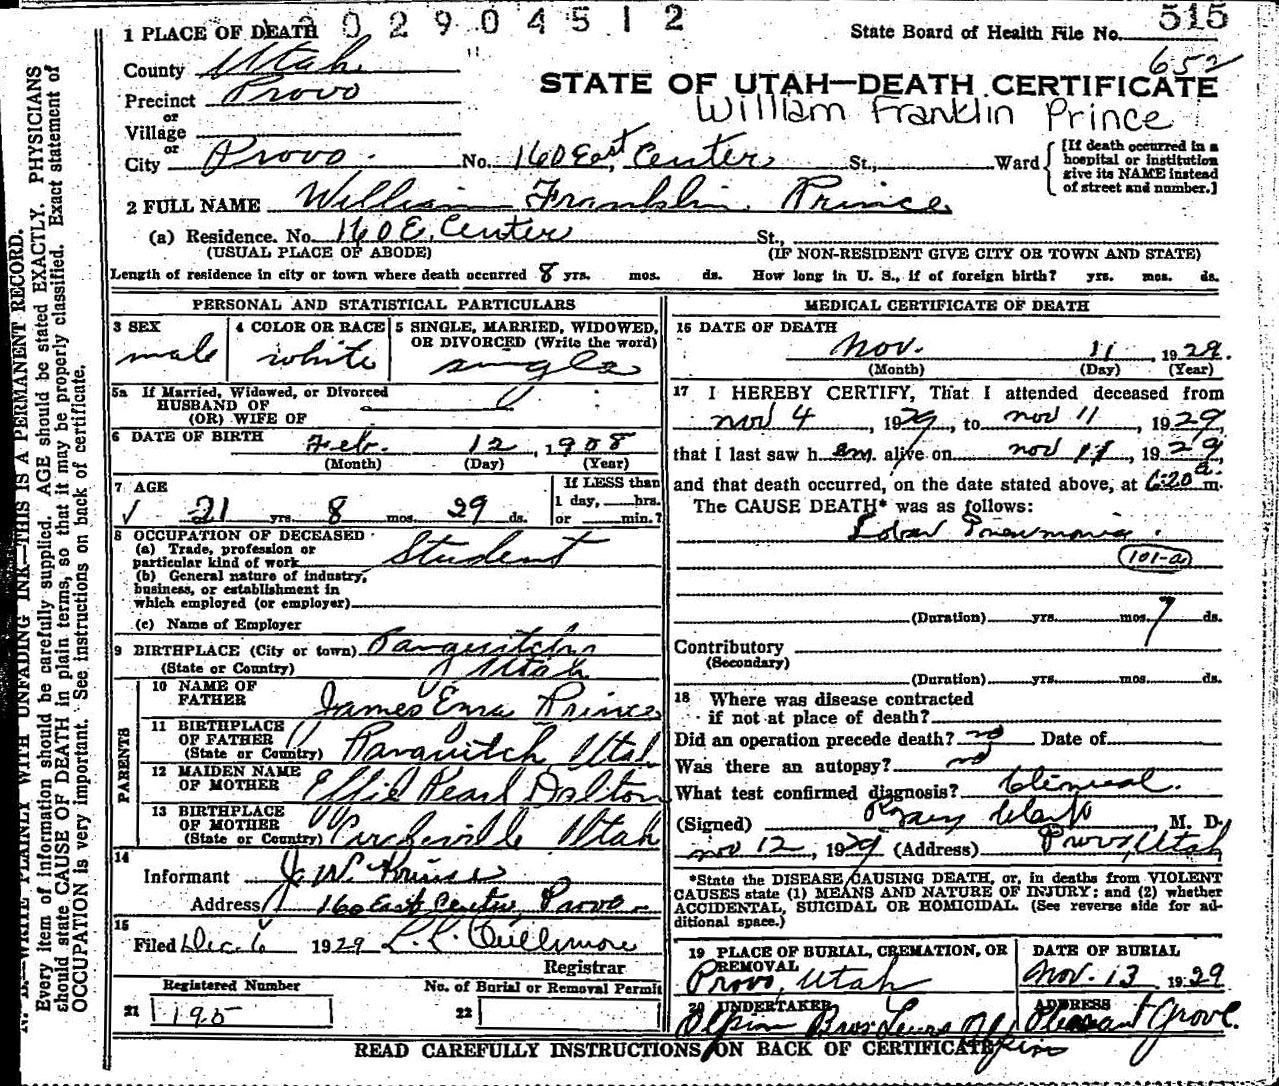 202904512
515
1 PLACE OF DEATH
State Board of Health File No.
652
County Utah
STATE OF UTAH—DEATH CERTIFICATE
Precinct Provo
William Franklin Prince
or
Village
or
City Provo. No. 160 East Center St., Ward
[If death occurred in a
hospital or institution
give its NAME instead
of street and number.]
2 FULL NAME William Franklin Prince
(a) Residence. No. 160 E. Center St.,
(USUAL PLACE OF ABODE) (IF NON-RESIDENT GIVE CITY OR TOWN AND STATE)
Length of residence in city or town where death occurred 8 yrs. mos. ds. How long in U. S., if of foreign birth? yrs. mos. ds.
PERSONAL AND STATISTICAL PARTICULARS
3 SEX
male
4 COLOR OR RACE
white
5 SINGLE, MARRIED, WIDOWED,
OR DIVORCED (Write the word)
single
5a If Married, Widowed, or Divorced
HUSBAND OF
(OR) WIFE OF
6 DATE OF BIRTH Feb. 12, 1908
(Month) (Day) (Year)
7 AGE
✓ 21 yrs. 8 mos. 29 ds.
If LESS than
1 day, hrs.
or min.?
8 OCCUPATION OF DECEASED
(a) Trade, profession or
particular kind of work Student
(b) General nature of industry,
business, or establishment in
which employed (or employer)
(c) Name of Employer
9 BIRTHPLACE (City or town) Panguitch
(State or Country) Utah
PARENTS
10 NAME OF
FATHER James Ezra Prince
11 BIRTHPLACE
OF FATHER
(State or Country) Panguitch, Utah
12 MAIDEN NAME
OF MOTHER Effie Pearl Dalton
13 BIRTHPLACE
OF MOTHER
(State or Country) Circleville Utah
14
Informant J. W. Prince
Address 160 East Center Provo
15
Filed Dec. 6 1929 L. L. Cullimore
Registrar
Registered Number No. of Burial or Removal Permit
21 195 22
MEDICAL CERTIFICATE OF DEATH
16 DATE OF DEATH
Nov. 11, 1929.
(Month) (Day) (Year)
17 I HEREBY CERTIFY, That I attended deceased from
Nov 4, 1929, to Nov 11, 1929,
that I last saw h em alive on Nov 11, 1929,
and that death occurred, on the date stated above, at 6:20 a. m.
The CAUSE DEATH* was as follows:
Lobar Pneumonia.
101-a
(Duration) yrs. mos. 7 ds.
Contributory
(Secondary)
(Duration) yrs. mos. ds.
18 Where was disease contracted
if not at place of death?
Did an operation precede death? no Date of
Was there an autopsy? no
What test confirmed diagnosis? Clinical.
(Signed) Clark M. D.
Nov 12, 1929 (Address) Provo, Utah
*State the DISEASE CAUSING DEATH, or, in deaths from VIOLENT
CAUSES state (1) MEANS AND NATURE OF INJURY; and (2) whether
ACCIDENTAL, SUICIDAL OR HOMICIDAL. (See reverse side for ad-
ditional space.)
19 PLACE OF BURIAL, CREMATION, OR
REMOVAL
Provo, Utah
DATE OF BURIAL
Nov. 13 1929
20 UNDERTAKER
Olpin Bros
ADDRESS
Pleasant Grove.
READ CAREFULLY INSTRUCTIONS ON BACK OF CERTIFICATE
WRITE PLAINLY WITH UNFADING INK—THIS IS A PERMANENT RECORD.
Every item of information should be carefully supplied. AGE should be stated EXACTLY. PHYSICIANS
should state CAUSE OF DEATH in plain terms, so that it may be properly classified. Exact statement of
OCCUPATION is very important. See instructions on back of certificate.